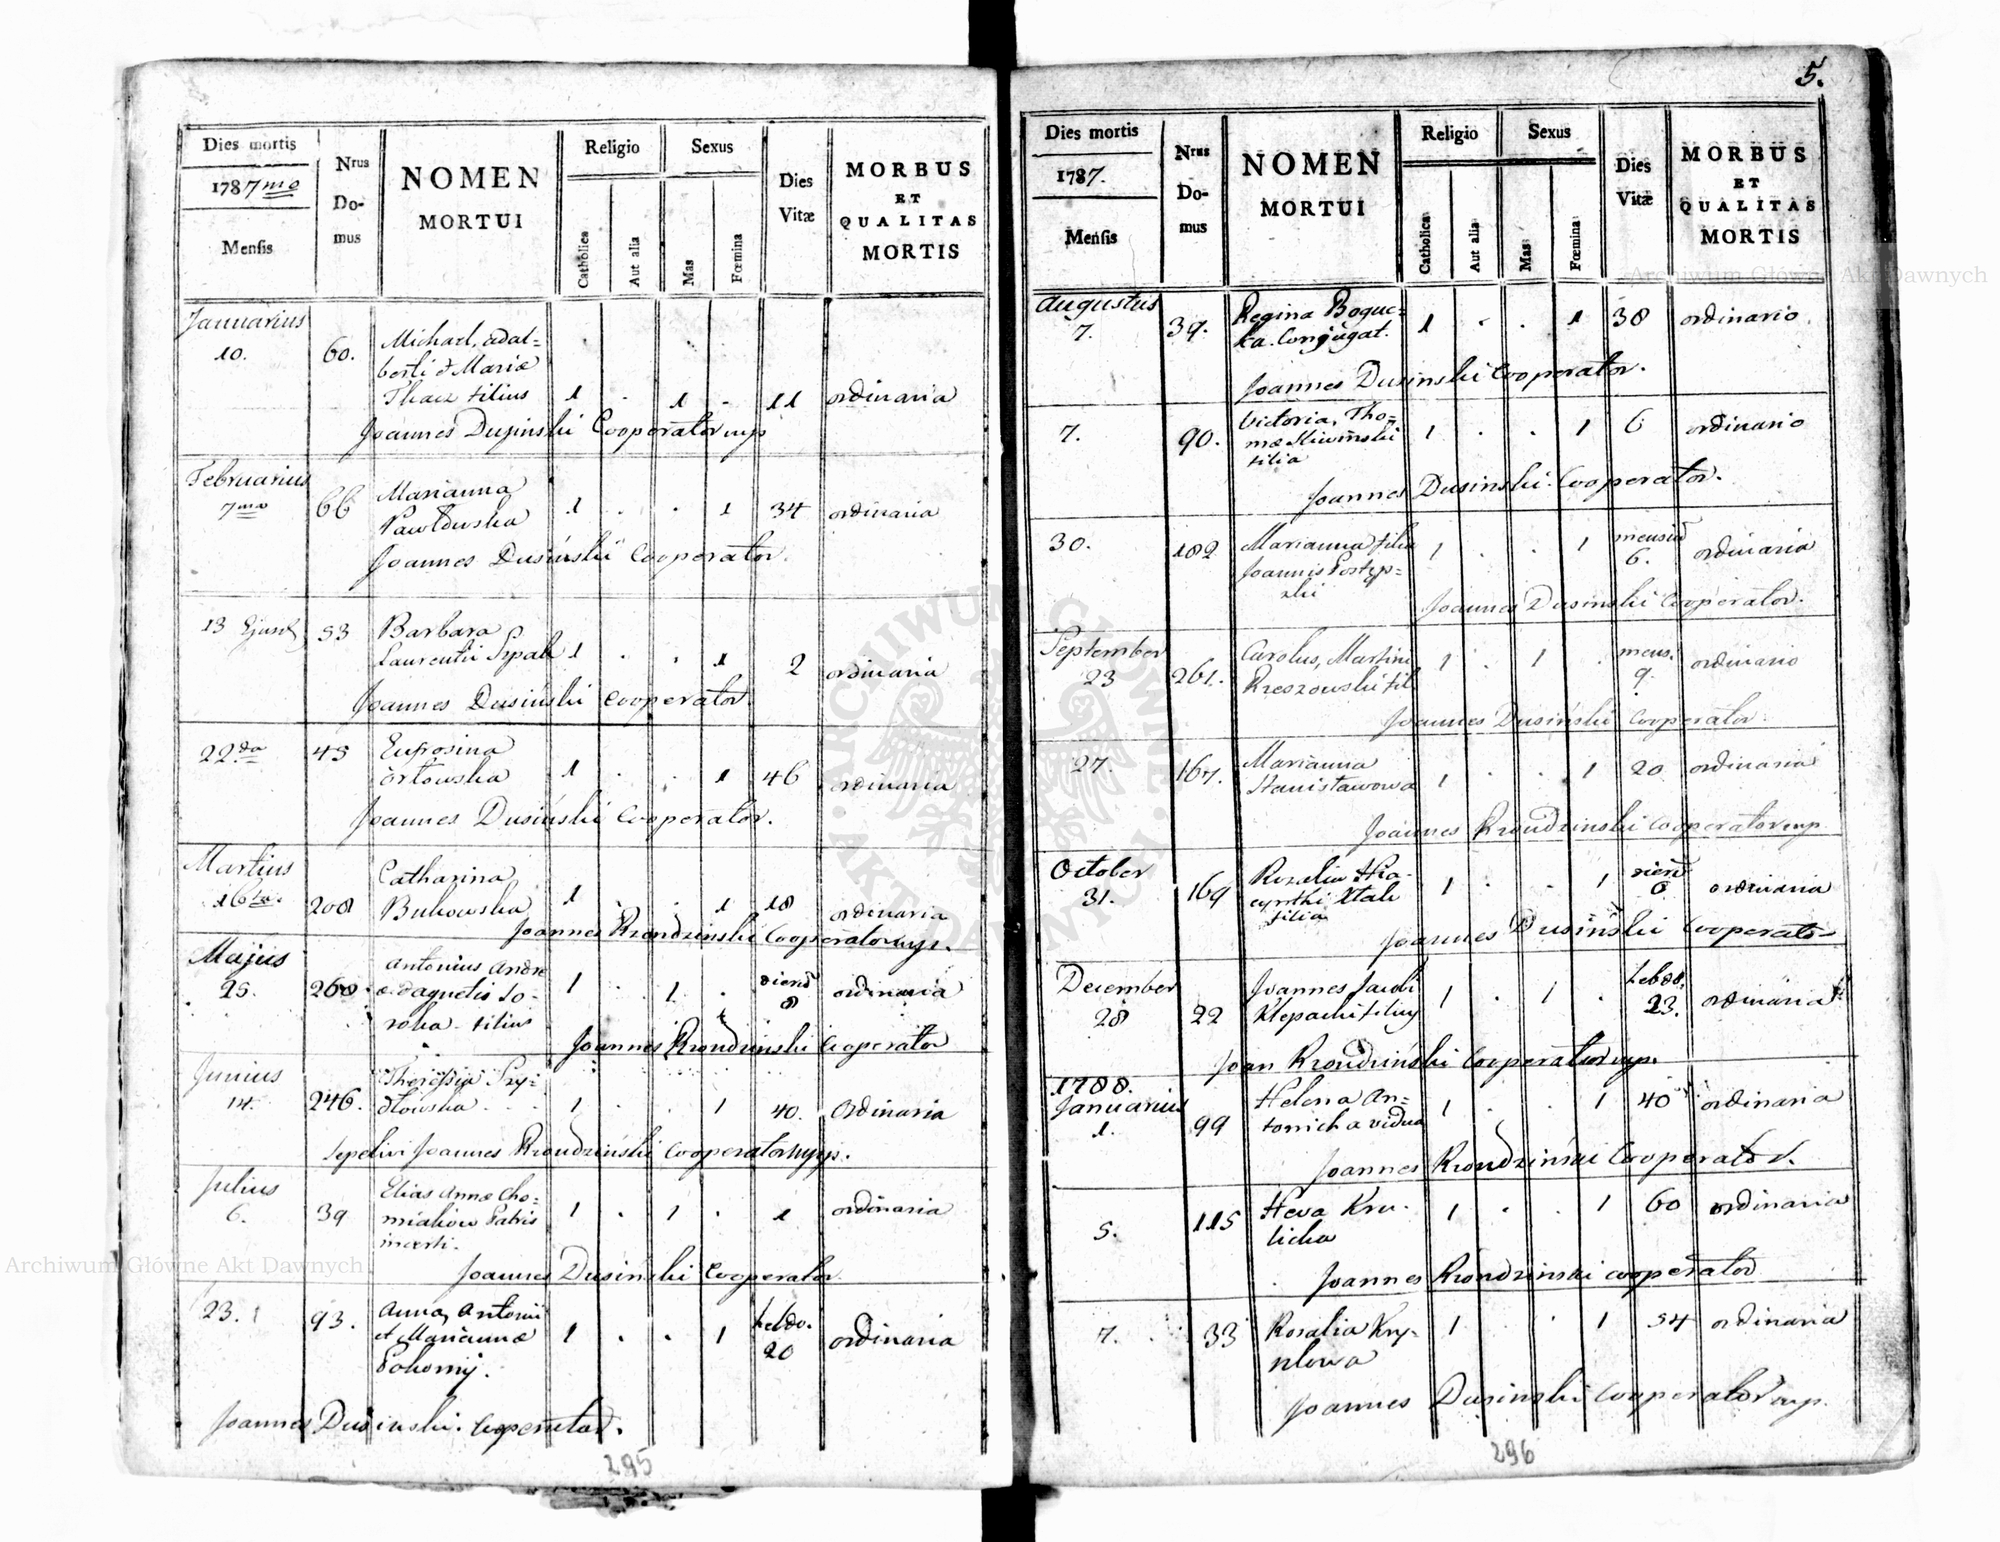 Dies mortis
1787mo
Mensis
Nrus
Do-
mus
NOMEN
MORTUI
Religio
Catholica
Aut alia
Sexus
Mas
Fœmina
Dies
Vitæ
MORBUS
ET
QUALITAS
MORTIS
Januarius
10. 60. Michael, Adal=
berti & Mariæ
filius 1 . 1 . 11 ordinaria
Joannes Dusinski Cooperator mp
Februarius
7ma 66 Marianna
Pawłowska 1 . . 1 34 ordinaria
Joannes Dusiński Cooperator.
13 Ejusd 53 Barbara
Laurentii 1 . . 1 2 ordinaria
Joannes Dusiński Cooperator.
22da 45 Eufrosina
Orłowska 1 . . 1 46 ordinaria
Joannes Dusiński Cooperator.
Martius
16ta 208 Catharina
Bukowska 1 . . 1 18 ordinaria
Joannes Rzondzinski Cooperator mp.
Majus
25. 260. Antonius Andre
æ & Agnetis So=
roka filius 1 . 1 . dierum 8 ordinaria
Joannes Rzondzinski Cooperator
Junius
14. 246. Theressia Szy=
dłowska 1 . . 1 40. Ordinaria
Sepelivi Joannes Rzondzinski Cooperator mpp.
Julius
6. 39 Elias Annæ Cho=
miakow Patris
incerti. 1 . 1 . 1 ordinaria
Joannes Dusiński Cooperator
23. 93. Anna, Antonii
et Mariannæ
Pokorny. 1 . . 1 hebdo. 20 ordinaria
Joannes Dusinski. Cooperator.
295
5.
Dies mortis
1787.
Mensis
Nrus
Do-
mus
NOMEN
MORTUI
Religio
Catholica
Aut alia
Sexus
Mas
Fœmina
Dies
Vitæ
MORBUS
ET
QUALITAS
MORTIS
Augustus
7. 39. Regina Boguc=
ka. Conjugat. 1 . . 1 38 ordinario
Joannes Dusinski Cooperator.
7. 90. Victoria, Tho=
mæ Sliwinski
filia 1 . . 1 6 ordinario
Joannes Dusinski Cooperator.
30. 182 Marianna filia
Joannis Postęp=
ski 1 . . 1 mensium 6. ordinaria
Joannes Dusinski Cooperator.
September
23 261. Carolus, Martini
Rzeszowski fil 1 . 1 . mens. 9. ordinario
Joannes Dusiński Cooperator.
27. 167. Marianna
Stanisławowa 1 . . 1 20 ordinaria
Joannes Rzondzinski Cooperator mp
October
31. 169 Rozalia Hia=
cynthi
filia 1 . . 1 dierum 8 ordinaria
Joannes Dusiński Cooperator
December
28 22 Joannes Jacobi
Klepacki filius 1 . 1 . hebdo. 23. ordinaria
Joan Rzondziński Cooperator mp.
1788.
Januarius
1. 99 Helena An=
tonicha vidua 1 . . 1 40 ordinaria
Joannes Rzondzinski Cooperator.
5. 115 Heva Kru=
licka 1 . . 1 60 ordinaria
Joannes Rzondzinski Cooperator
7. 33 Rosalia Kry=
1 . . 1 54 ordinaria
Joannes Dusinski Cooperator mp.
296
Archiwum Główne Akt Dawnych
Archiwum Główne Akt Dawnych
ARCHIWUM GŁÓWNE · AKT DAWNYCH ·